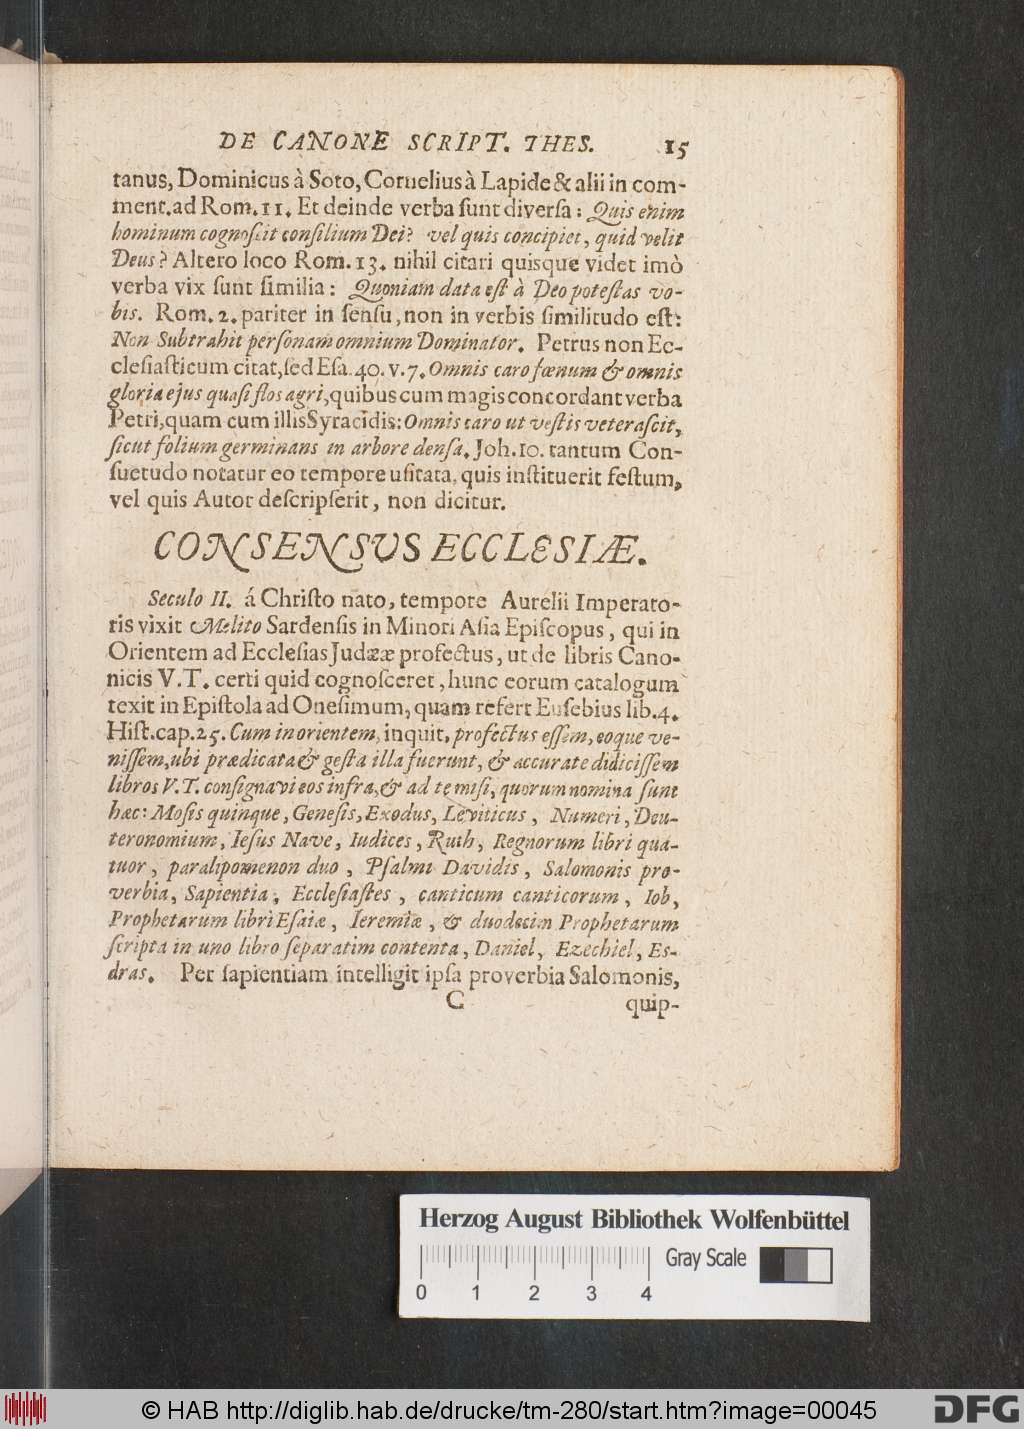 DE CANONE SCRIPT. THES. 15
tanus, Dominicus à Soto, Cornelius à Lapide & alii in com-
ment. ad Rom. 11. Et deinde verba ſunt diverſa: Quis enim
hominum cognoſcit conſilium Dei? vel quis concipiet, quid velit
Deus? Altero loco Rom. 13. nihil citari quisque videt imò
verba vix ſunt ſimilia: Quoniam data eſt à Deo poteſtas vo-
bis. Rom. 2. pariter in ſenſu, non in verbis ſimilitudo eſt:
Non Subtrahit perſonam omnium Dominator. Petrus non Ec-
cleſiaſticum citat, ſed Eſa. 40. v. 7. Omnis caro fœnum & omnis
gloria ejus quaſi flos agri, quibus cum magis concordant verba
Petri, quam cum illis Syracidis: Omnis caro ut veſtis veteraſcit,
ſicut folium germinans in arbore denſa. Joh. 10. tantum Con-
ſuetudo notatur eo tempore uſitata, quis inſtituerit feſtum,
vel quis Autor deſcripſerit, non dicitur.
CONSENSVS ECCLESIÆ.
Seculo II. á Chriſto nato, tempore Aurelii Imperato-
ris vixit Melito Sardenſis in Minori Aſia Epiſcopus, qui in
Orientem ad Eccleſias Judææ profectus, ut de libris Cano-
nicis V. T. certi quid cognoſceret, hunc eorum catalogum
texit in Epiſtola ad Oneſimum, quam refert Euſebius lib. 4.
Hiſt. cap. 25. Cum in orientem, inquit, profectus eſſem, eoque ve-
niſſem, ubi prædicata & geſta illa fuerunt, & accurate didiciſſem
libros V. T. conſignavi eos infra, & ad te miſi, quorum nomina ſunt
hæc: Moſis quinque, Geneſis, Exodus, Leviticus, Numeri, Deu-
teronomium, Ieſus Nave, Iudices, Ruth, Regnorum libri qua-
tuor, paralipomenon duo, Pſalmi Davidis, Salomonis pro-
verbia, Sapientia, Eccleſiaſtes, canticum canticorum, Iob,
Prophetarum libri Eſaiæ, Ieremiæ, & duodecim Prophetarum
ſcripta in uno libro ſeparatim contenta, Daniel, Ezechiel, Eſ-
dras. Per ſapientiam intelligit ipſa proverbia Salomonis,
C quip-
Herzog August Bibliothek Wolfenbüttel
Gray Scale
0 1 2 3 4
© HAB http://diglib.hab.de/drucke/tm-280/start.htm?image=00045
DFG